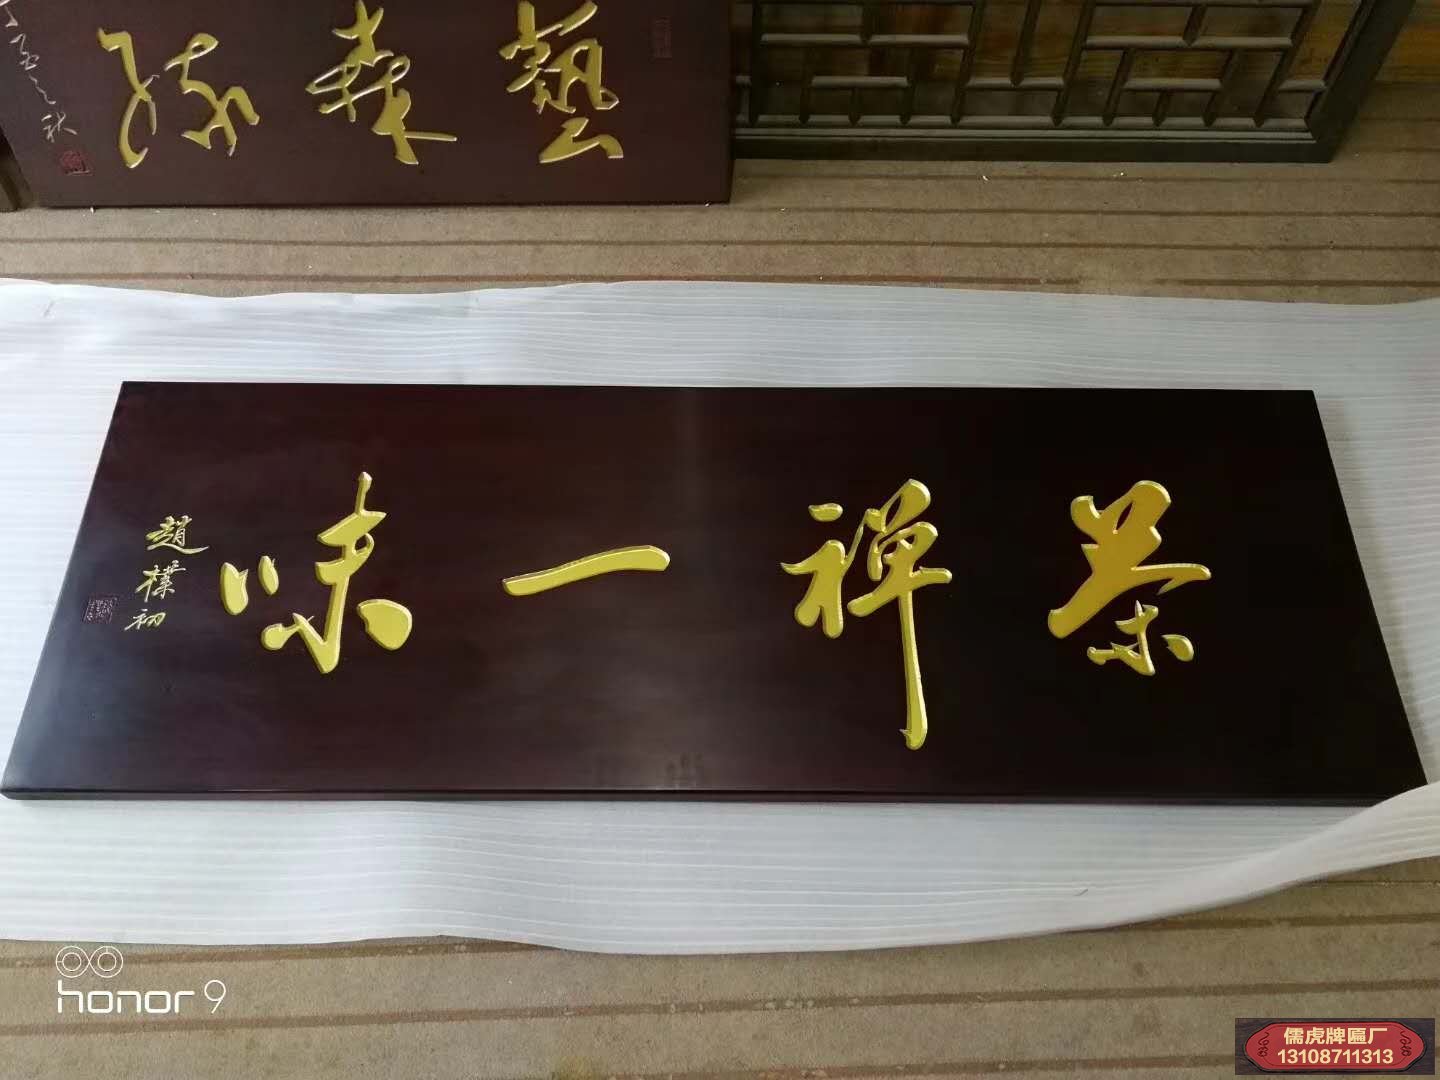 藝森
之秋
茶禅一味
趙樸初
honor 9
儒虎牌匾厂
13108711313